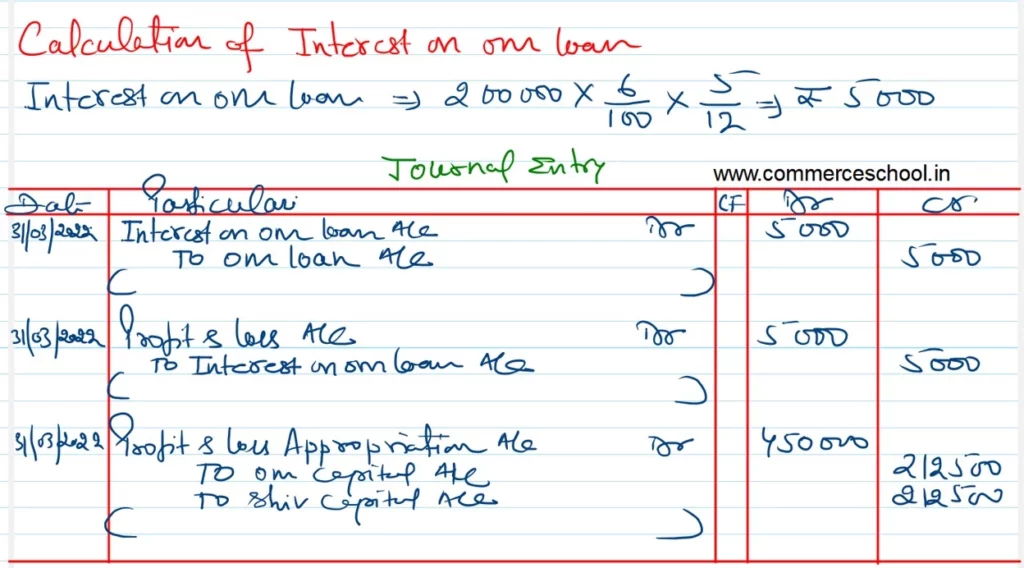 Calculation of Interest on om loan
Interest on om loan ⇒ 200000 × 6/100 × 5/12 ⇒ ₹ 5000
Journal Entry
www.commerceschool.in
Date Particular CF Dr Cr
31/03/2022 Interest on om loan A/c Dr 5000
To om loan A/c 5000
( )
31/03/2022 Profit & loss A/c Dr 5000
To Interest on om loan A/c 5000
( )
31/03/2022 Profit & loss Appropriation A/c Dr 450000
To om capital A/c 212500
To shiv capital A/c 212500
( )